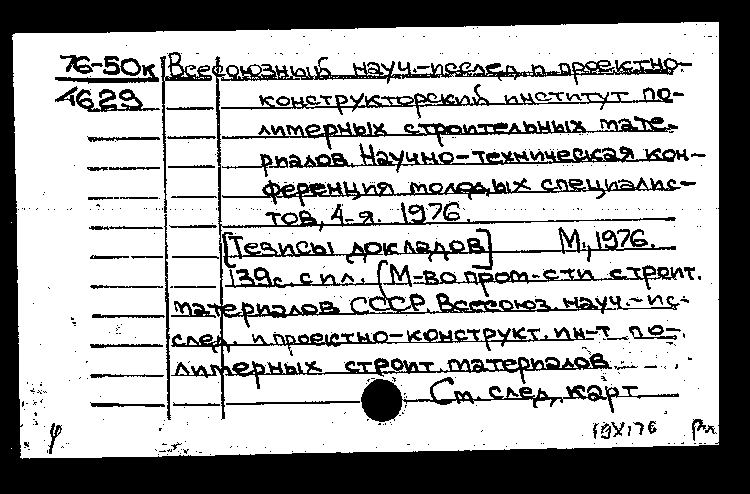 76-50к Всесоюзный науч.-исслед и проектно-
4629 конструкторский институт по-
лимерных строительных мате-
риалов. Научно-техническая кон-
ференция молодых специалис-
тов, 4-я. 1976.
[Тезисы докладов] М., 1976.
139с. с ил. (М-во пром-сти строит.
материалов СССР. Всесоюз. науч.-ис-
след. и проектно-конструкт. ин-т по-
лимерных строит. материалов
См. след. карт.